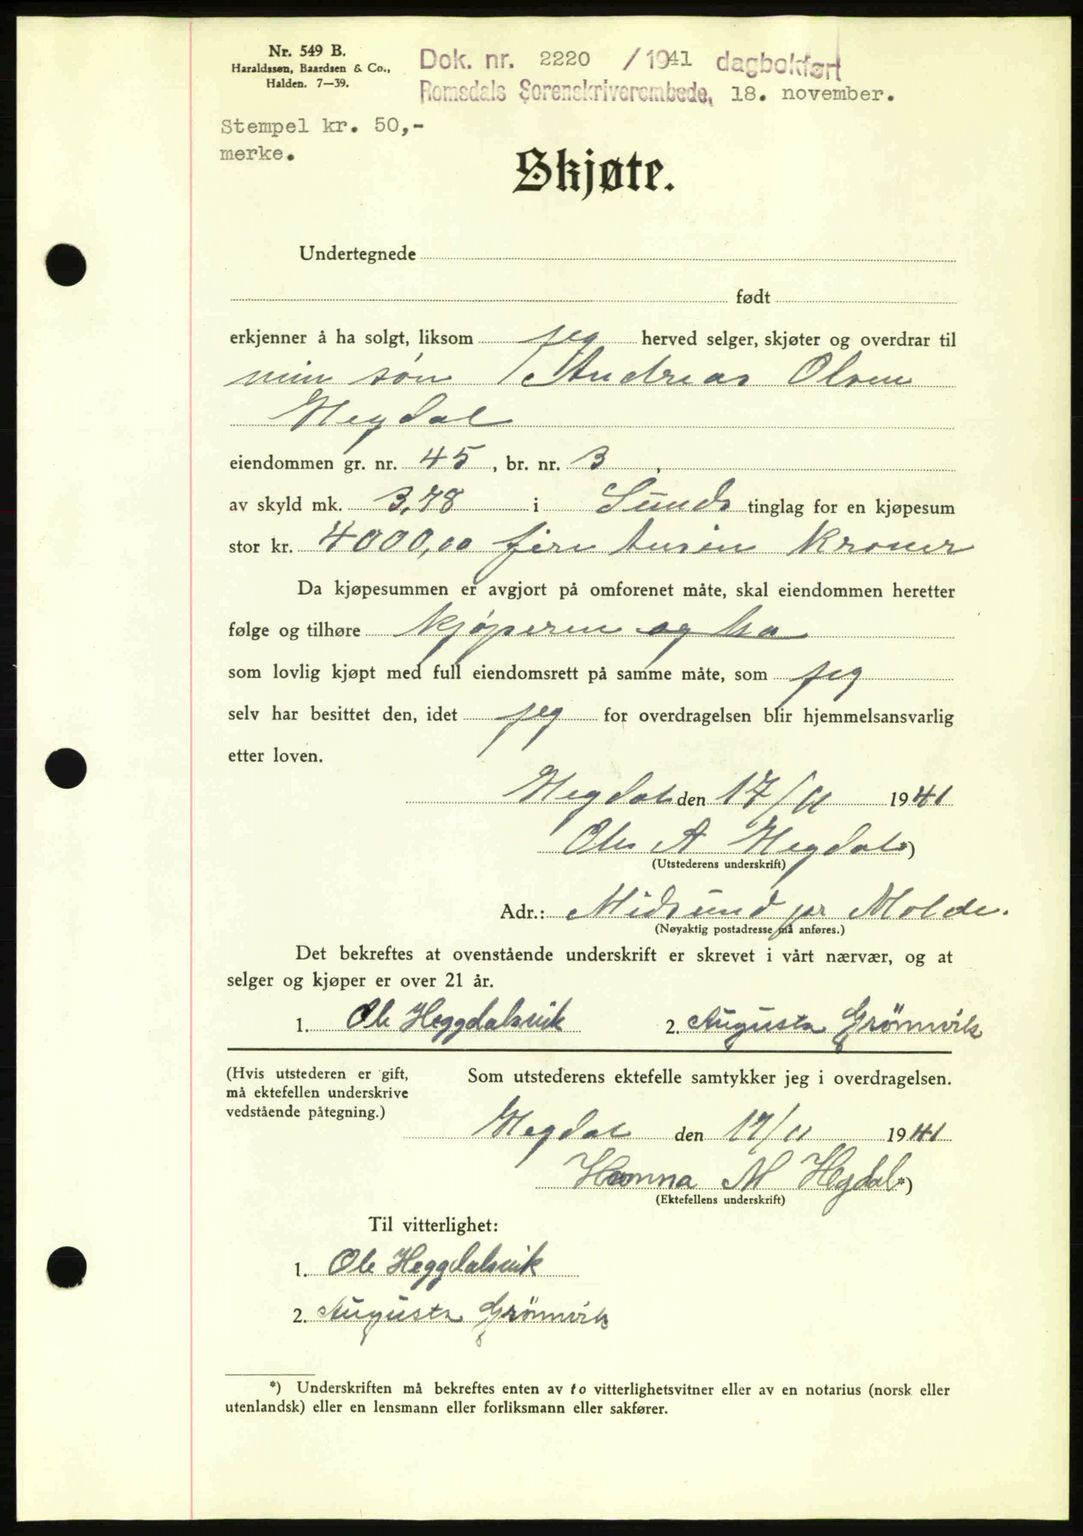 Nr. 549 B.
Haraldssøn, Baardsen & Co.,
Halden. 7—39.
Dok. nr. 2220 /1941 dagbokført
Romsdals Sorenskriverembede, 18. november.
Stempel kr. 50,-
merke.
Skjøte.
Undertegnede
født
erkjenner å ha solgt, liksom jeg herved selger, skjøter og overdrar til
min søn Andreas Olsen
Hegdal
eiendommen gr. nr. 45, br. nr. 3,
av skyld mk. 3,78 i Sunds tinglag for en kjøpesum
stor kr. 4000,00 fire tusin kroner
Da kjøpesummen er avgjort på omforenet måte, skal eiendommen heretter
følge og tilhøre kjøperen og ha
som lovlig kjøpt med full eiendomsrett på samme måte, som jeg
selv har besittet den, idet jeg for overdragelsen blir hjemmelsansvarlig
etter loven.
Hegdal den 17/11 1941
Ole A Hegdal *)
(Utstederens underskrift)
Adr.: Midsund pr Molde.
(Nøyaktig postadresse må anføres.)
Det bekreftes at ovenstående underskrift er skrevet i vårt nærvær, og at
selger og kjøper er over 21 år.
1. Ole Heggdalsvik 2. Augusta Grönnvik
(Hvis utstederen er gift,
må ektefellen underskrive
vedstående påtegning.)
Som utstederens ektefelle samtykker jeg i overdragelsen.
Hegdal den 17/11 1941
Hanna M Hegdal *)
(Ektefellens underskrift)
Til vitterlighet:
1. Ole Heggdalsvik
2. Augusta Grönnvik
*) Underskriften må bekreftes enten av to vitterlighetsvitner eller av en notarius (norsk eller
utenlandsk) eller en lensmann eller forliksmann eller sakfører.